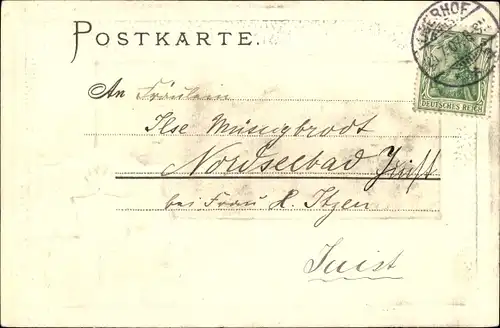 POSTKARTE.
DEUTSCHES REICH
An Fräulein
Ilse Müssigbrodt
Nordseebad Juist
bei Frau H. Itzen
Juist